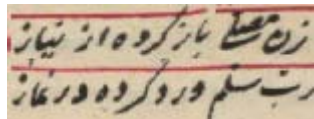 زن مصلی باز کرده از نیاز
رب سلم ورد کرده در نماز